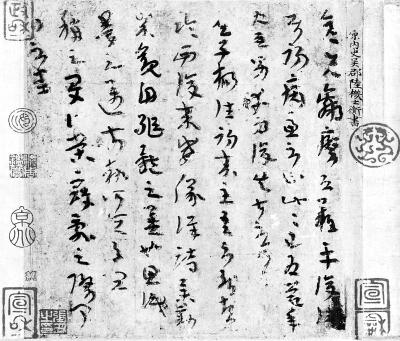 原內史吳郡陸機士衡書
彦先羸瘵恐難平復往屬
初病慮不止此此已為慶承使
唯男幸為復失前憂耳吳
子楊往初來主吾不能盡
臨西復來威儀詳跱舉動
成觀自軀體之美也思識
量之邁前執所恒有宜
稱之夏伯榮寇亂之際聞
問不悉